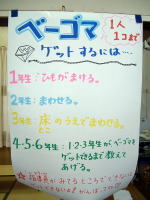 ベーゴマ
1人
1コまで
ゲットするには…
1年生:ひもがまける。
2年生:まわせる。
3年生:床のうえでまわせる。
とこ
4・5・6年生:1・2・3年生がベーゴマを
ゲットできるまで教えて
あげる。
指導員がみてるところで